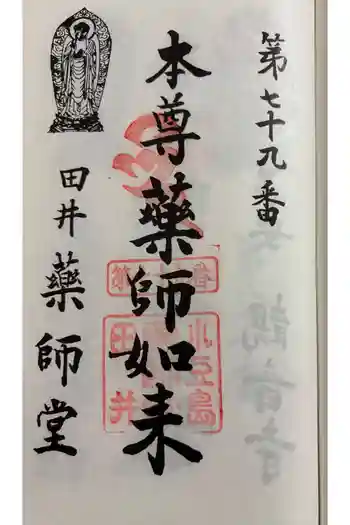 第七十九番
本尊薬師如来
田井薬師堂
小豆島
田井